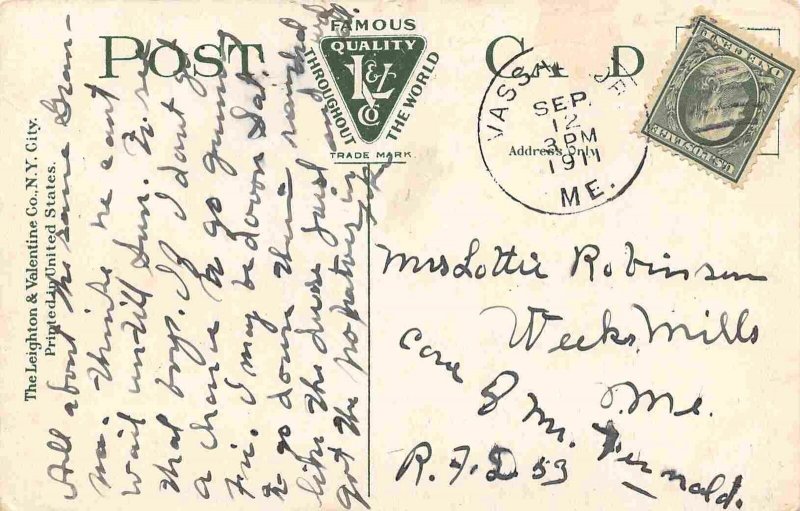 POST CARD
FAMOUS
QUALITY
L&V
CO
THROUGHOUT THE WORLD
TRADE MARK
Address Only
VASSA
SEP.
12
3 PM
1911
ME.
U.S. POSTAGE
ONE CENT
The Leighton & Valentine Co., N.Y. City.
Printed in United States.
All about the same Gran-
ma. thinks he cant
wait untill Sun. to see
that boy. If I dont get
a chance to go gunning
Fri. I may be down Sat.
to go down there
like the duse just
got the potatoes in
Mrs Lottie Robinson
Weeks Mills
Me.
care of Mr. Fernald.
R.F.D 53